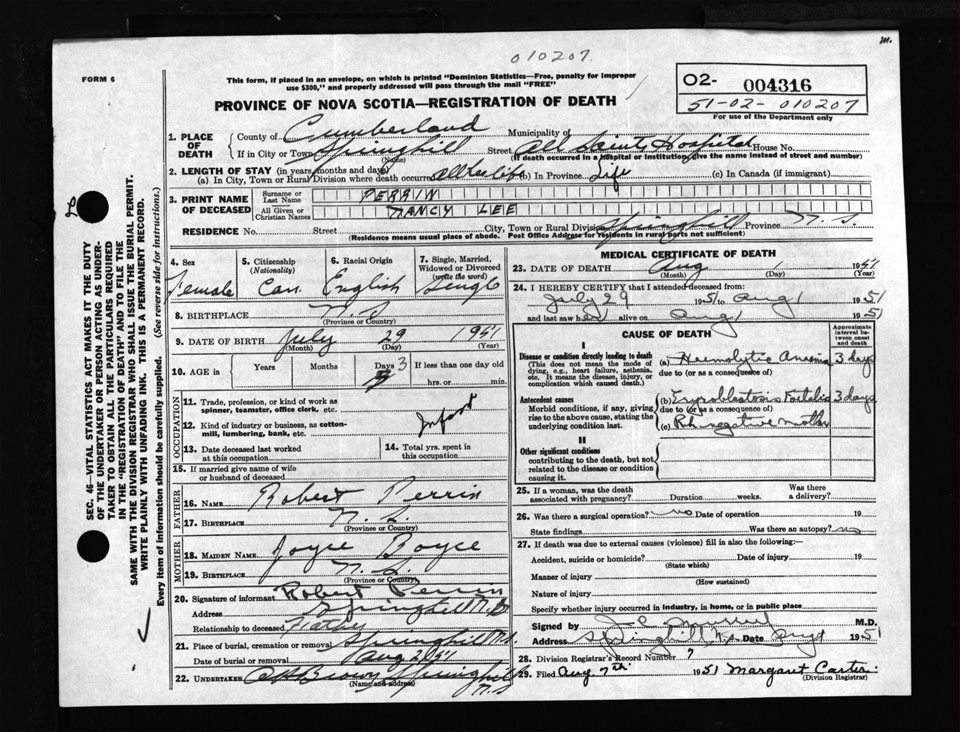 010207
FORM 6
This form, if placed in an envelope, on which is printed "Dominion Statistics—Free, penalty for improper
use $300," and properly addressed will pass through the mail "FREE"
02- 004316
51-02- 010207
For use of the Department only
PROVINCE OF NOVA SCOTIA—REGISTRATION OF DEATH
1. PLACE OF DEATH
County of Cumberland Municipality of
If in City or Town Springhill Street All Saints Hospital House No.
(Name) (If death occurred in a hospital or institution, give the name instead of street and number)
2. LENGTH OF STAY (in years, months and days)
(a) In City, Town or Rural Division where death occurred all her life (b) In Province Life (c) In Canada (if immigrant)
3. PRINT NAME OF DECEASED
Surname or Last Name PERRIN
All Given or Christian Names NANCY LEE
RESIDENCE No. Street City, Town or Rural Division Springhill Province N.S.
(Residence means usual place of abode. Post Office Address for residents in rural parts not sufficient)
4. Sex Female
5. Citizenship (Nationality) Can.
6. Racial Origin English
7. Single, Married, Widowed or Divorced (write the word) Single
8. BIRTHPLACE N.S.
(Province or Country)
9. DATE OF BIRTH July 29 1951
(Month) (Day) (Year)
10. AGE in Years Months Days 3 If less than one day old
hrs. or min.
OCCUPATION
11. Trade, profession, or kind of work as
spinner, teamster, office clerk, etc.
12. Kind of industry or business, as cotton-
mill, lumbering, bank, etc. Infant
13. Date deceased last worked
at this occupation
14. Total yrs. spent in
this occupation
15. If married give name of wife
or husband of deceased
FATHER
16. NAME Robert Perrin
17. BIRTHPLACE N.S.
(Province or Country)
MOTHER
18. MAIDEN NAME Joyce Boyce
19. BIRTHPLACE N.S.
(Province or Country)
20. Signature of informant Robert Perrin
Address Springhill N.S.
Relationship to deceased Father
21. Place of burial, cremation or removal Springhill N.S.
Date of burial or removal Aug 2/51
22. UNDERTAKER Brown Springhill
(Name and address) N.S
MEDICAL CERTIFICATE OF DEATH
23. DATE OF DEATH Aug 1 1951
(Month) (Day) (Year)
24. I HEREBY CERTIFY that I attended deceased from:
July 29 1951 to Aug 1 1951
and last saw her alive on Aug 1 1951
CAUSE OF DEATH
Approximate interval between onset and death
I
Disease or condition directly leading to death
(This does not mean the mode of
dying, e.g., heart failure, asthenia,
etc. It means the disease, injury, or
complication which caused death.)
(a) Haemolytic Anaemia 3 days
due to (or as a consequence of)
Antecedent causes
Morbid conditions, if any, giving
rise to the above cause, stating the
underlying condition last.
(b) Eryroblastosis Foetalis 3 days
due to (or as a consequence of)
(c) Rh negative mother
II
Other significant conditions
contributing to the death, but not
related to the disease or condition
causing it.
25. If a woman, was the death
associated with pregnancy? Duration weeks. Was there
a delivery?
26. Was there a surgical operation? no Date of operation 19
State findings Was there an autopsy? no
27. If death was due to external causes (violence) fill in also the following:—
Accident, suicide or homicide? Date of injury 19
(State which)
Manner of injury
(How sustained)
Nature of injury
Specify whether injury occurred in industry, in home, or in public place
Signed by Murray M.D.
Address Springhill N.S. Date Aug 1 1951
28. Division Registrar's Record Number 7
29. Filed Aug. 7th 1951 Margaret Carter
(Division Registrar)
SEC. 46—VITAL STATISTICS ACT MAKES IT THE DUTY
OF THE UNDERTAKER OR PERSON ACTING AS UNDER-
TAKER TO OBTAIN ALL THE PARTICULARS REQUIRED
IN THE "REGISTRATION OF DEATH" AND TO FILE THE
SAME WITH THE DIVISION REGISTRAR WHO SHALL ISSUE THE BURIAL PERMIT.
WRITE PLAINLY WITH UNFADING INK. THIS IS A PERMANENT RECORD.
Every item of information should be carefully supplied. (See reverse side for instructions.)